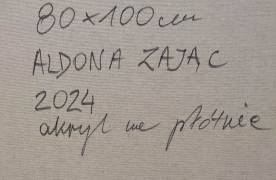 80x100cm
ALDONA ZAJĄC
2024
akryl na płótnie